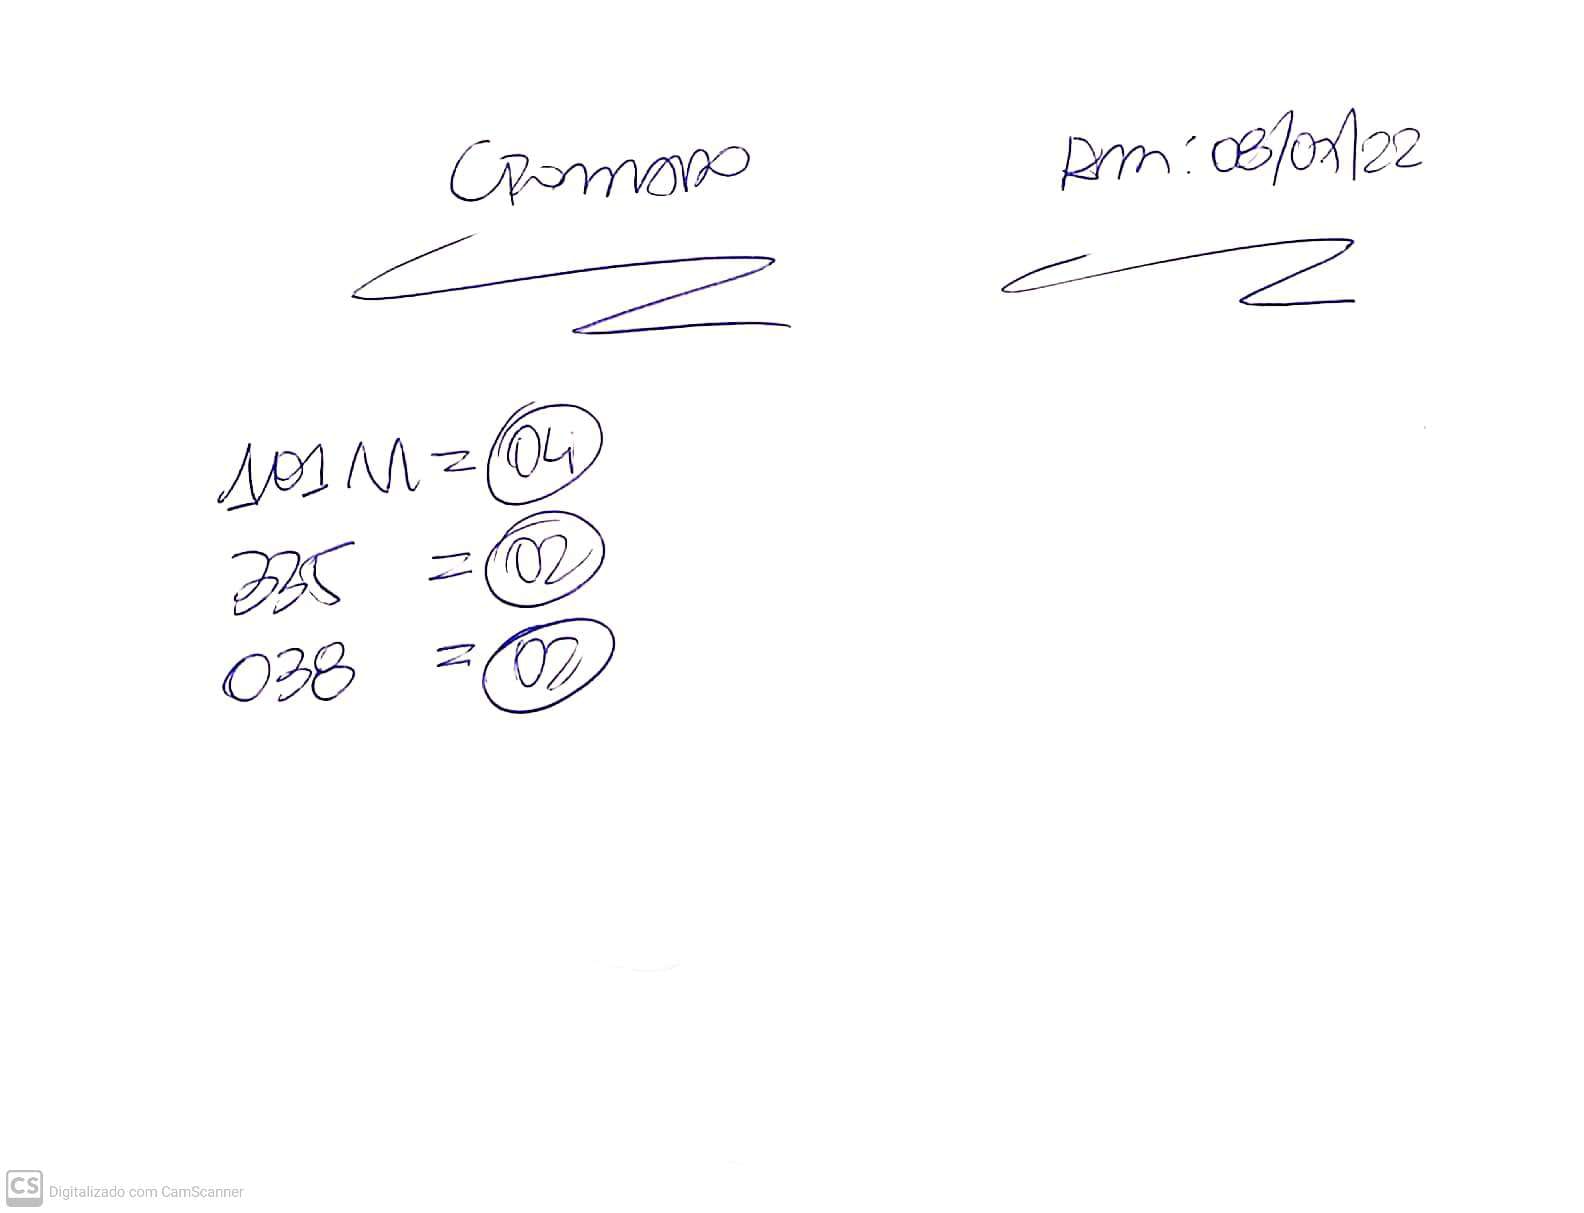 CROMADO
Rm: 08/01/22
101 M = 04
335 = 02
038 = 02
CS Digitalizado com CamScanner